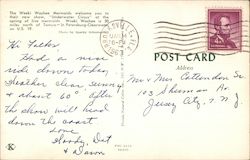 The Weeki Wachee Mermaids welcome you to
their new show, "Underwater Circus" at the
spring of live mermaids. Weeki Wachee is
miles north of Tampa - St. Petersburg-Clearwater
on U.S. 19.
POST CARD
Address
Hi Folks,
Had a nice
ride down today,
Weather clear, sunny
& about 60°
the show will head
down the coast
Love
& Dawn
Mr & Mrs Cottenden Sr.
103 Sherman Av.
Jersey City, N.J.